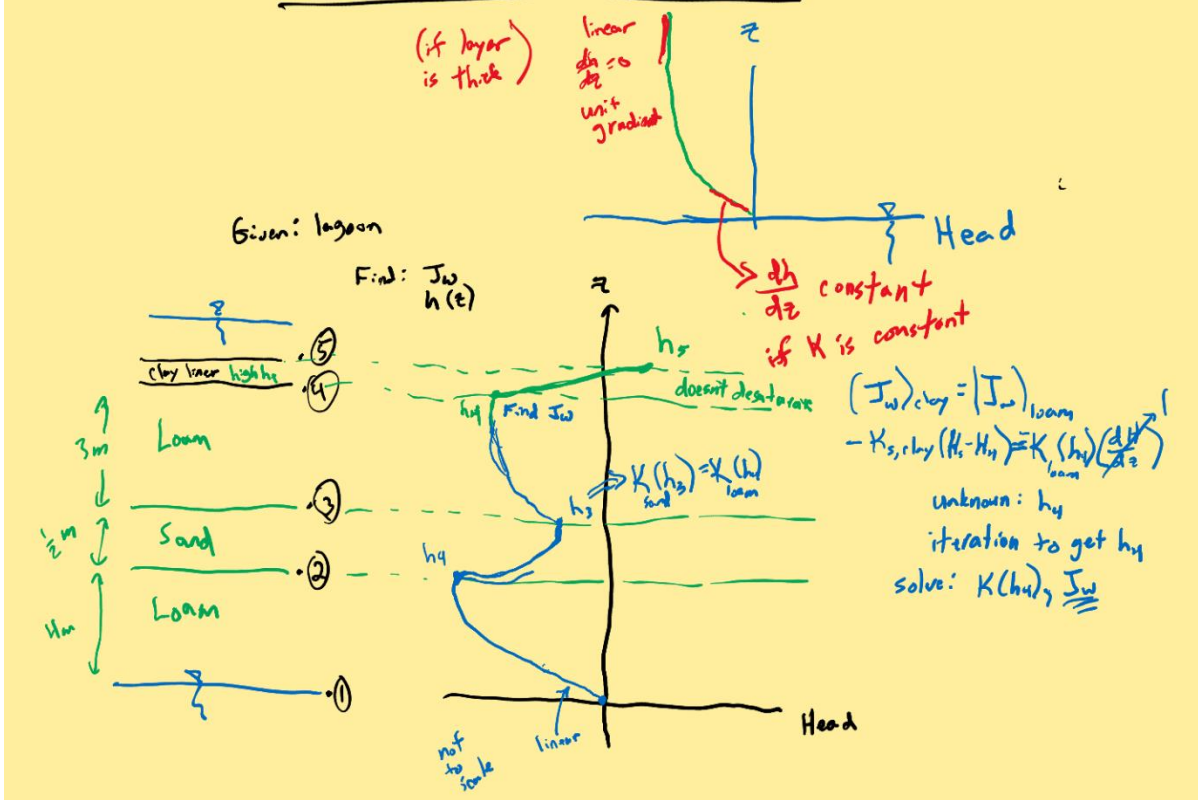 (if layer
is thick)
linear
dh/dz = 0
unit
gradient
z
Head
dh/dz constant
if K is constant
Given: lagoon
Find: Jw
h(z)
z
clay liner high he
5
4
3m
Loam
3
1/2 m
Sand
2
Loam
1
h5
doesn't desaturate
h4 Find Jw
h3 ⇒ K sand (h3) = K loam (h4)
h4
linear
not
to
scale
Head
(Jw)clay = (Jw)loam
- Ks,clay (H5 - H4) = K loam (h4) (dH/dz) 1
unknown: h4
iteration to get h4
solve: K(h4), Jw